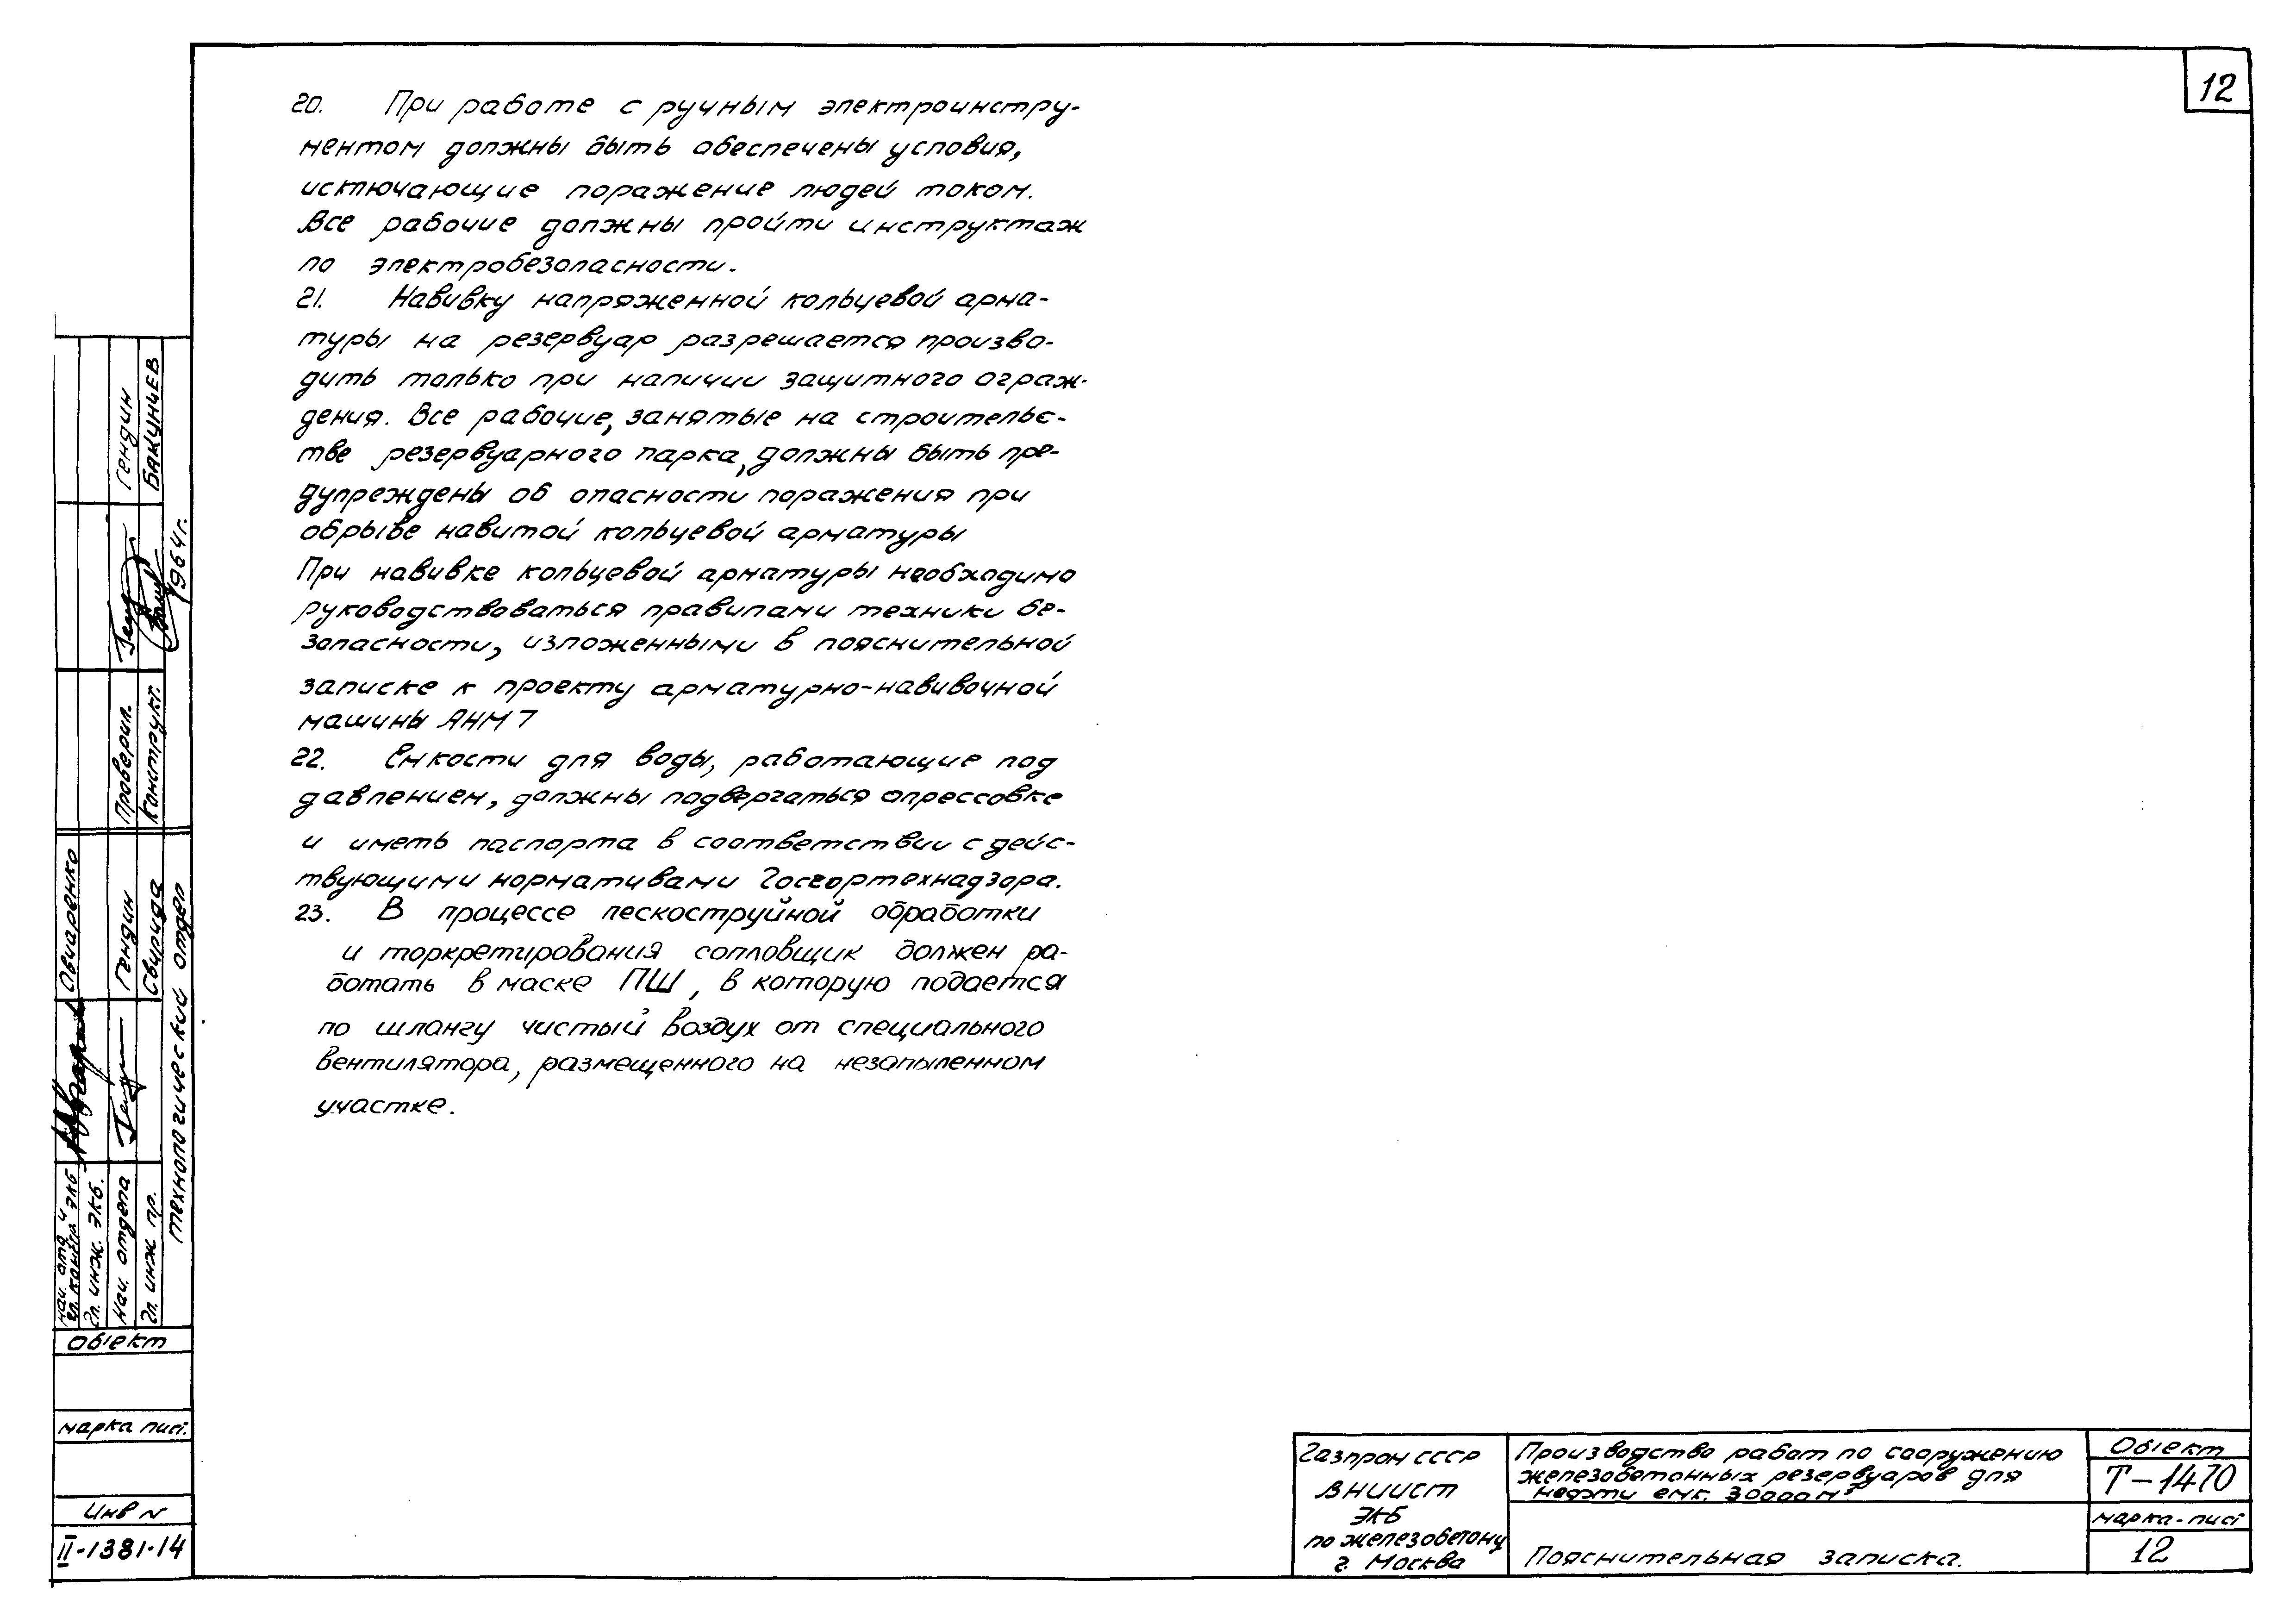 12
20. При работе с ручным электроинстру-
ментом должны быть обеспечены условия,
исключающие поражение людей током.
Все рабочие должны пройти инструктаж
по электробезопасности.
21. Навивку напряженной кольцевой арма-
туры на резервуар разрешается произво-
дить только при наличии защитного ограж-
дения. Все рабочие, занятые на строительс-
тве резервуарного парка, должны быть пре-
дупреждены об опасности поражения при
обрыве навитой кольцевой арматуры
При навивке кольцевой арматуры необходимо
руководствоваться правилами техники бе-
зопасности, изложенными в пояснительной
записке к проекту арматурно-навивочной
машины АНМ7
22. Емкости для воды, работающие под
давлением, должны подвергаться опрессовке
и иметь паспорта в соответствии с дейс-
твующими нормативами Госгортехнадзора.
23. В процессе пескоструйной обработки
и торкретирования сопловщик должен ра-
ботать в маске ПШ, в которую подается
по шлангу чистый воздух от специального
вентилятора, размещенного на незапыленном
участке.
Гендин
Бакуничев
1964г.
Проверил.
Конструкт.
Овчаренко
Гендин
Свирида
технологический отдел
Нач. отд и
гл. констр. ЭКБ
Гл. инж. ЭКБ.
Нач. отдела
Гл. инж пр.
Объект
марка лист.
Инв N
II-1381-14
Газпром СССР
ВНИИСТ
ЭКБ
по железобетону
г. Москва
Производство работ по сооружению
железобетонных резервуаров для
нефти емк. 30000м³
Пояснительная записка.
Объект
Т-1470
марка-лист
12